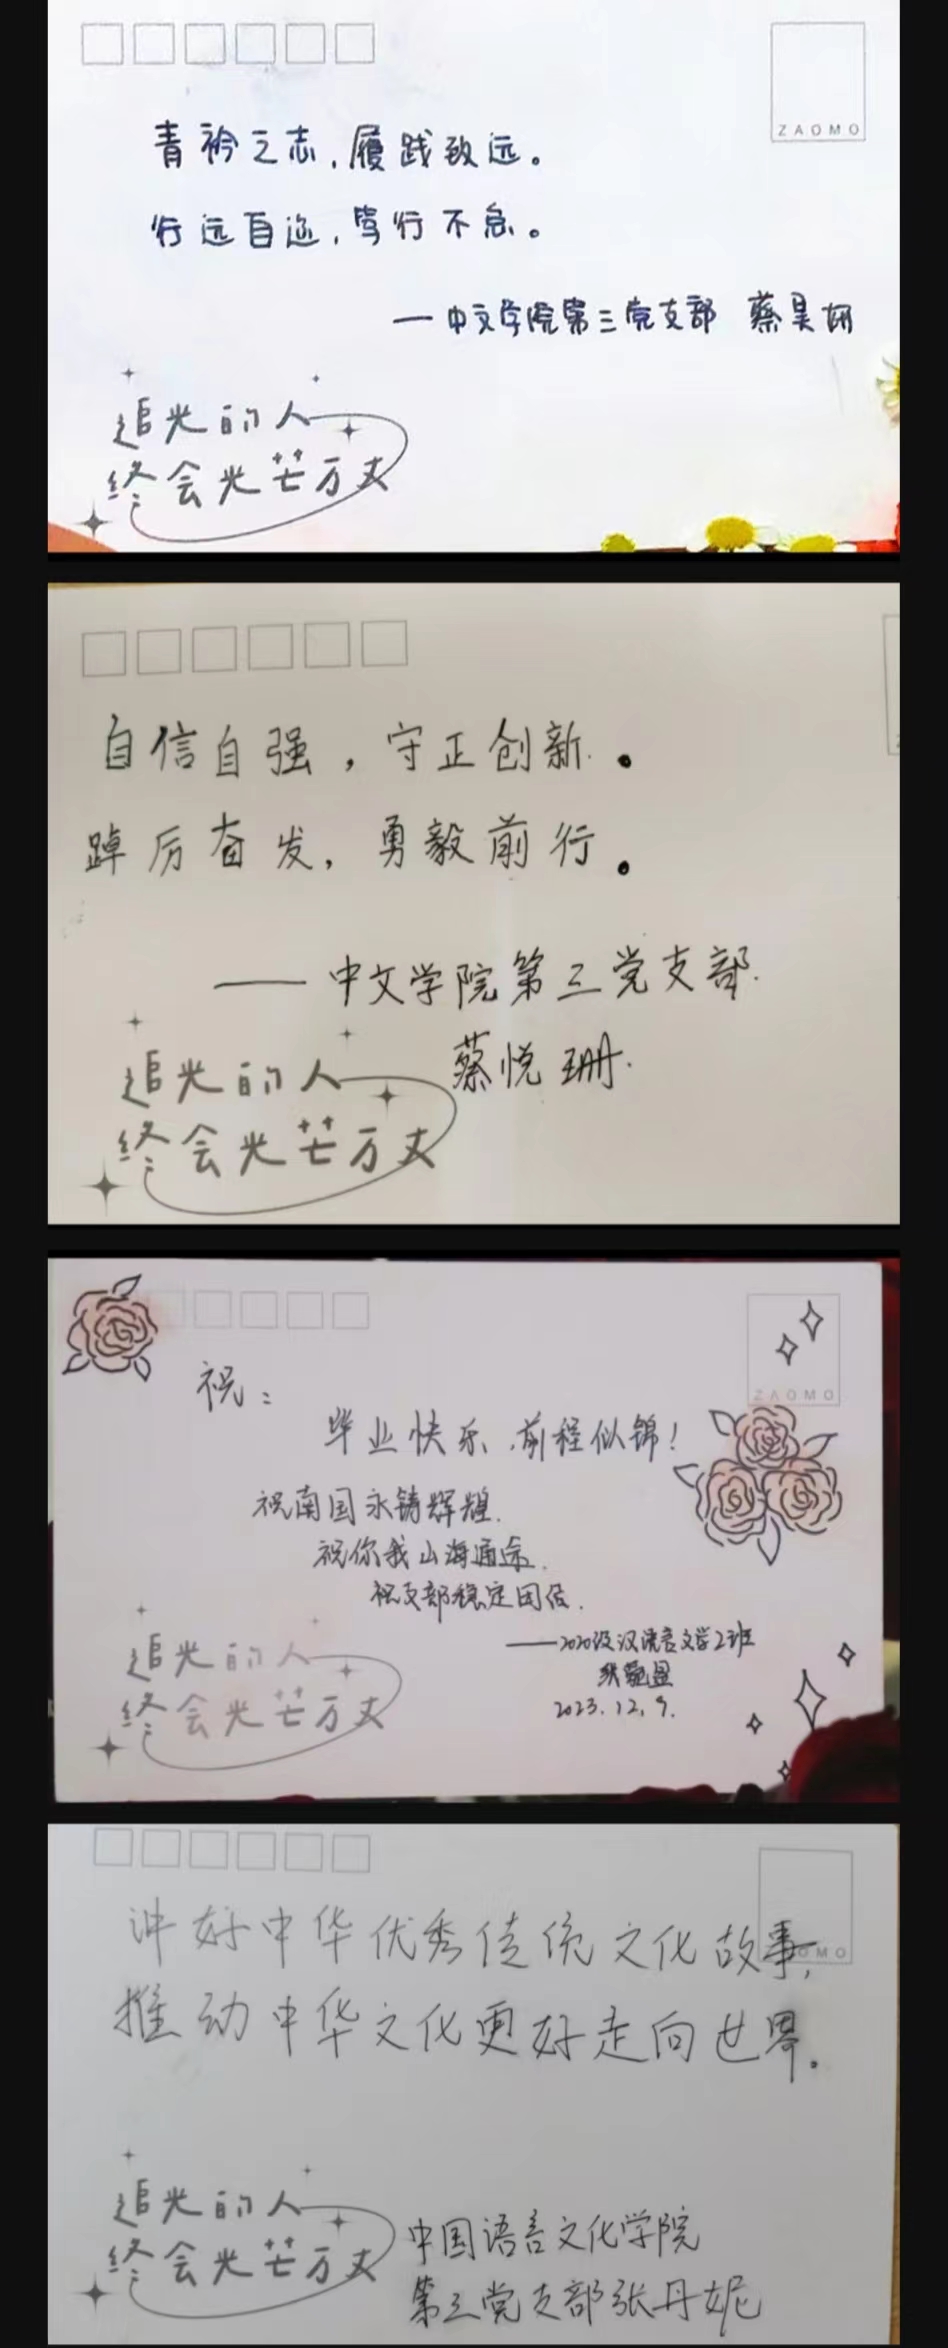 ZAOMO
青衿之志,履践致远。
行远自迩,笃行不怠。
——中文学院第三党支部 蔡昊妍
追光的人
终会光芒万丈
自信自强,守正创新。
踔厉奋发,勇毅前行。
——中文学院第三党支部.
蔡悦珊.
追光的人
终会光芒万丈
ZAOMO
祝:
毕业快乐,前程似锦!
祝南国永铸辉煌.
祝你我山海通途.
祝支部稳定团结.
——2020级汉语言文学2班
2023.12.9.
追光的人
终会光芒万丈
讲好中华优秀传统文化故事,
OMO
推动中华文化更好走向世界。
追光的人
终会光芒万丈
中国语言文化学院
第三党支部张丹妮